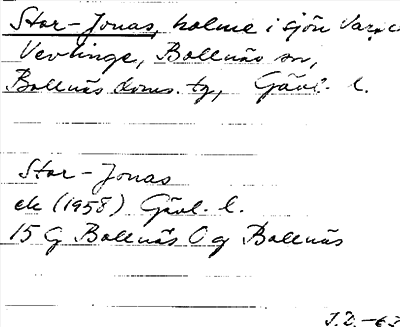 Stor-Jonas, holme i sjön
Vevlinge, Bollnäs sn,
Bollnäs doms. tg, Gävl. l.
Stor-Jonas
ek (1958) Gävl. l.
15 G Bollnäs 0 g Bollnäs
J.D. -63